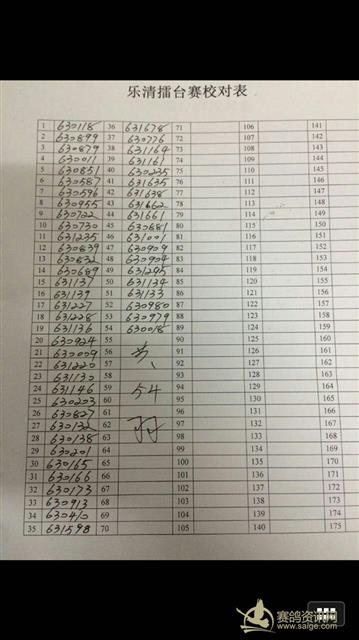 乐清擂台赛校对表
1 630118 36 631678 71 106 141
2 630899 37 630776 72 107 142
3 630879 38 631164 73 108 143
4 630011 39 631161 74 109 144
5 630851 40 630235 75 110 145
6 630587 41 631635 76 111 146
7 630596 42 631638 77 112 147
8 630955 43 631662 78 113 148
9 630722 44 631661 79 114 149
10 630730 45 630881 80 115 150
11 631235 46 631001 81 116 151
12 630839 47 630909 82 117 152
13 630832 48 630904 83 118 153
14 630689 49 631295 84 119 154
15 631137 50 631134 85 120 155
16 631139 51 631133 86 121 156
17 631227 52 630980 87 122 157
18 631228 53 630979 88 123 158
19 631136 54 630018 89 124 159
20 630924 55 90 125 160
21 630009 56 共 91 126 161
22 631220 57 92 127 162
23 631130 58 93 128 163
24 631146 59 54 94 129 164
25 630203 60 95 130 165
26 630827 61 96 131 166
27 630132 62 羽 97 132 167
28 630138 63 98 133 168
29 630201 64 99 134 169
30 630165 65 100 135 170
31 630166 66 101 136 171
32 630173 67 102 137 172
33 630913 68 103 138 173
34 630410 69 104 139 174
35 631598 70 105 140 175
赛鸽资讯网
www.saige.com